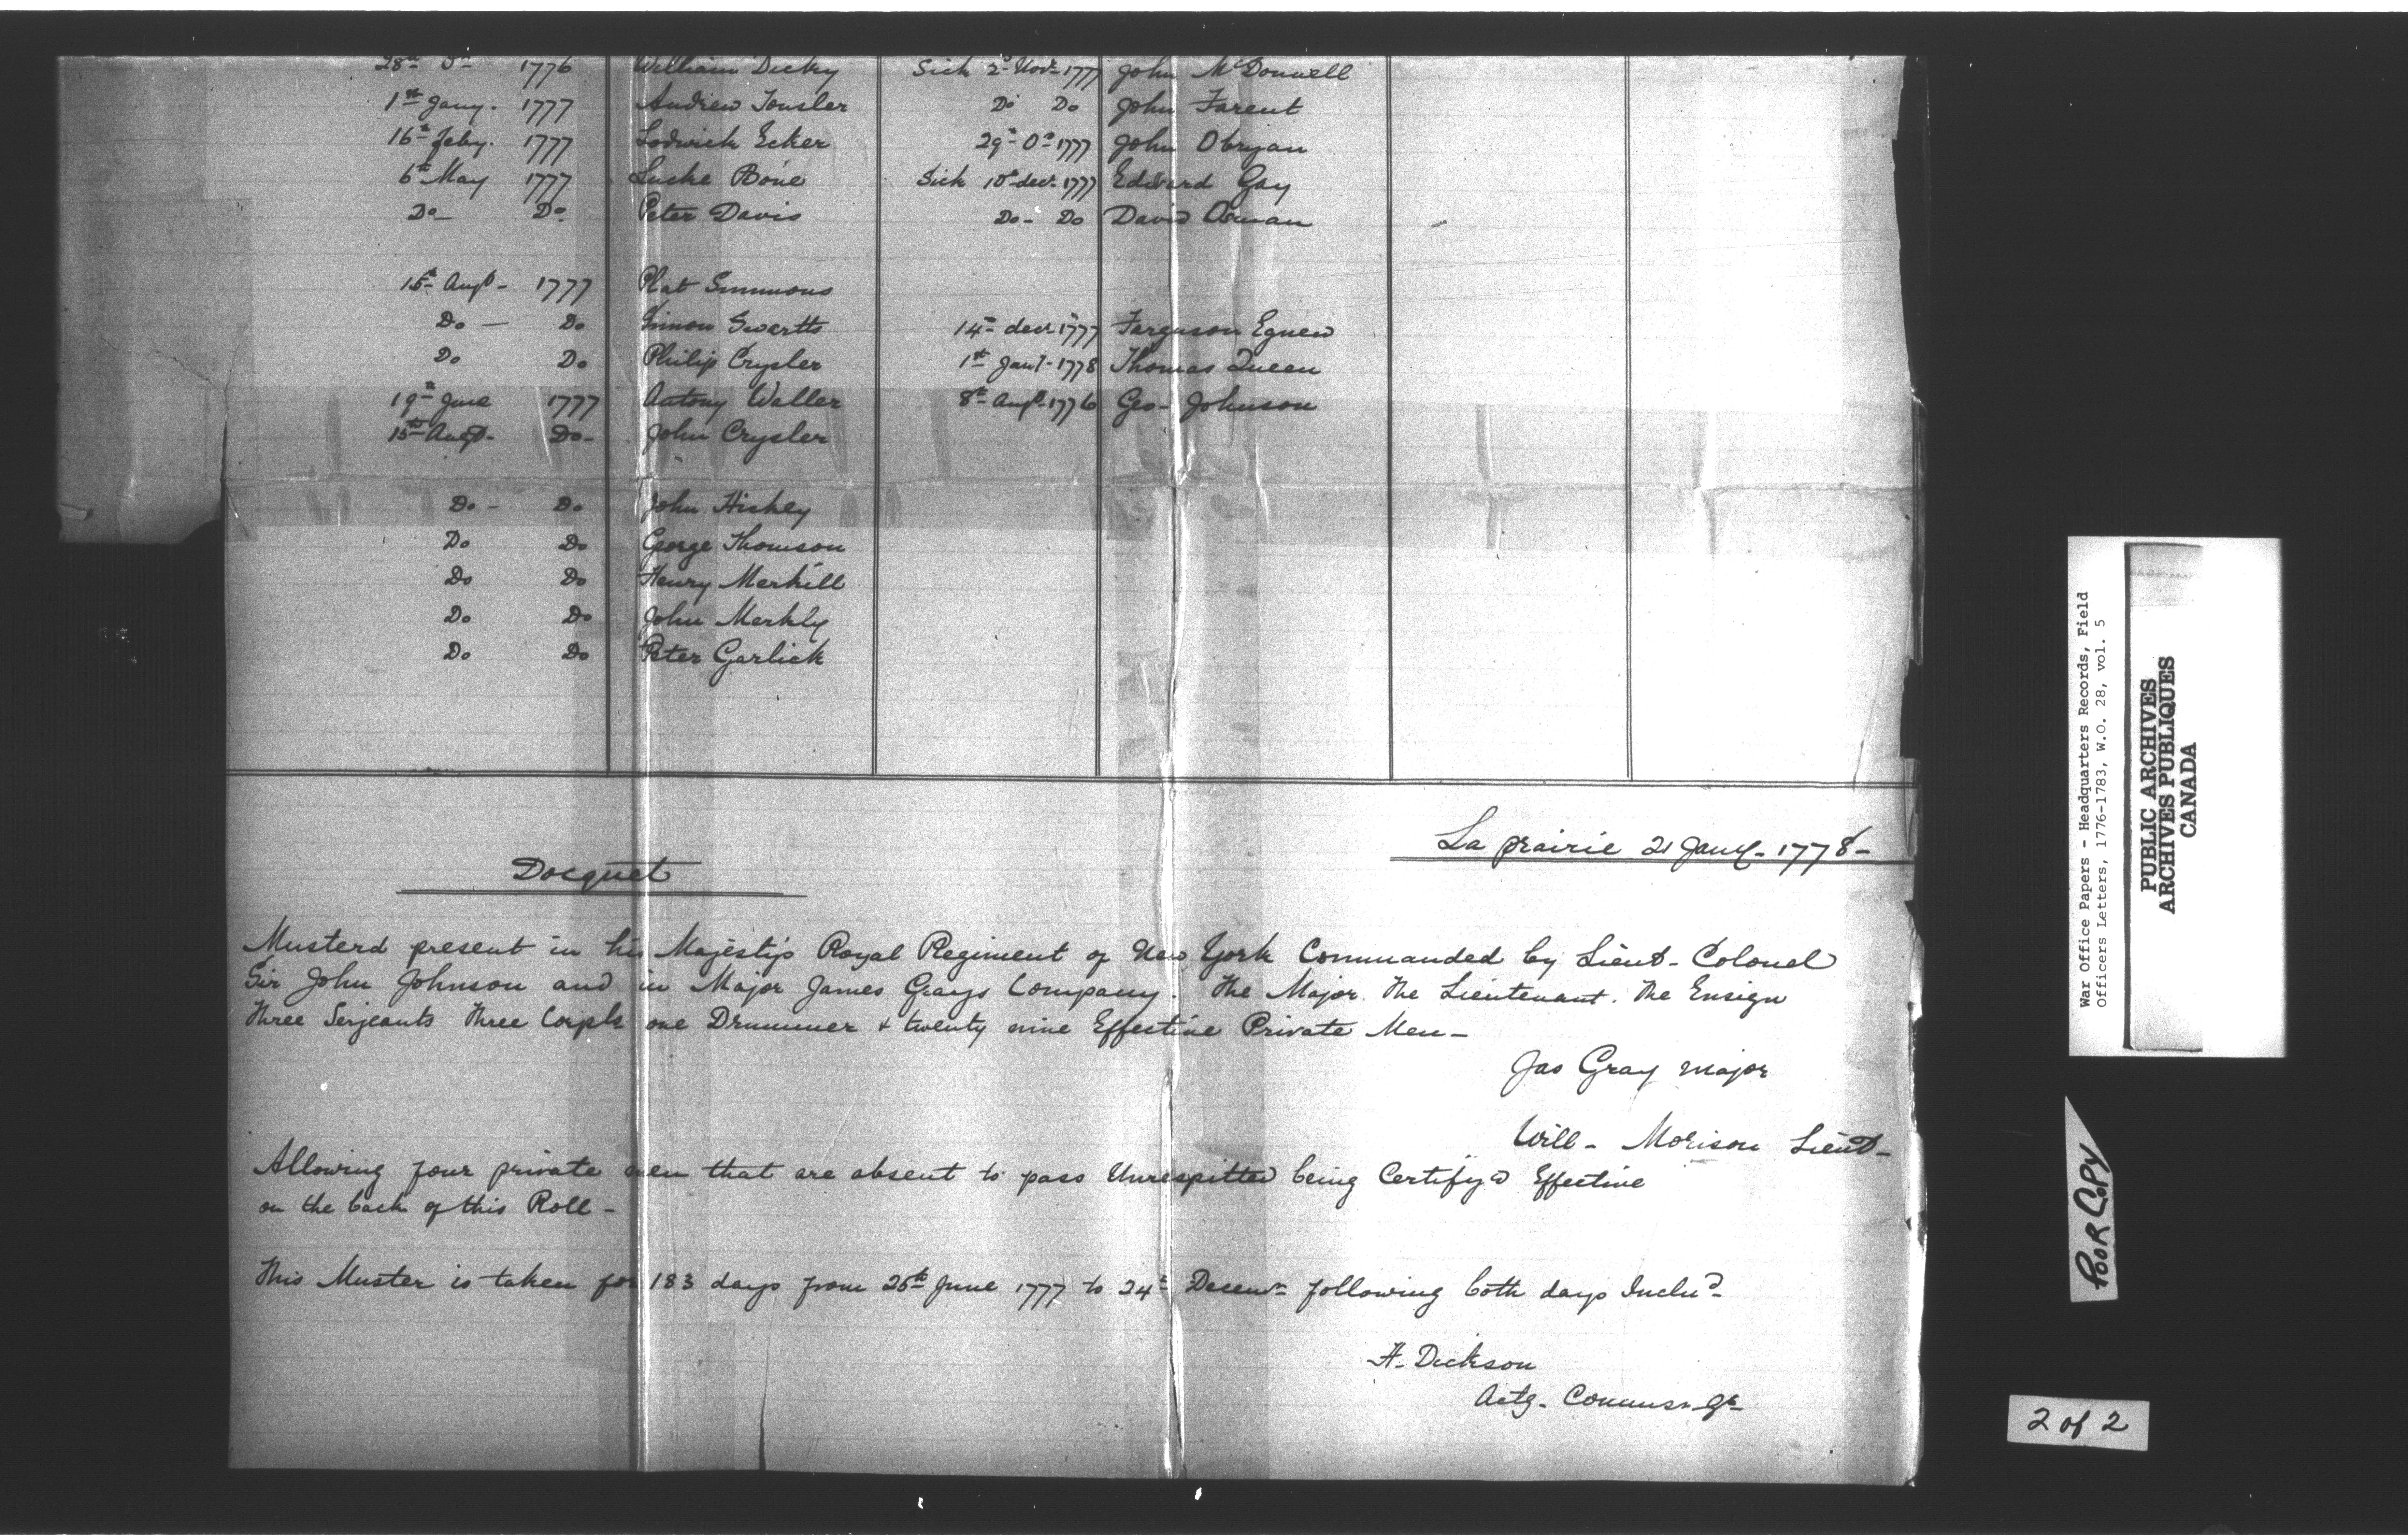 28th Do 1776 William Dicky Sick 2d Novr 1777 John McDonnell
1st Jany. 1777 Andrew Tousler Do Do John Farent
16th Feby. 1777 Lodwick Ecker 29th Do 1777 John Obryan
6th May 1777 Lucke Bone Sick 10th decr 1777 Edward Gay
Do Do Peter Davis Do - Do David Asman
15th Augt - 1777 Plat Simmons
Do - Do Simon Swartts 14th decr 1777 Ferguson Egnew
Do Do Philip Crysler 1st Jany - 1778 Thomas Queen
19th June 1777 Antony Waller 8th Augt 1776 Geo - Johnson
15th Augt - Do - John Crysler
Do - Do John Hickey
Do Do George Thomson
Do Do Henry Merkill
Do Do John Merkly
Do Do Peter Garlick
La prairie 21 Jany - 1778 -
Docquet
Musterd present in his Majesty's Royal Regiment of New York Commanded by Lieut - Colonel
Sir John Johnson and in Major James Grays Company. The Major. The Lieutenant. The Ensign
Three Serjeants Three Corpls one Drummer + twenty nine Effective Private Men -
Jas Gray major
Will - Morison Lieut -
Allowing four private men that are absent to pass Unrespitted being Certify'd Effective
on the back of this Roll -
This Muster is taken for 183 days from 25th June 1777 to 24th Decemr following both days Includ
A - Dickson
Actg - Commsr
War Office Papers - Headquarters Records, Field
Officers Letters, 1776-1783, W.O. 28, vol. 5
PUBLIC ARCHIVES
ARCHIVES PUBLIQUES
CANADA
POOR COPY
2 of 2